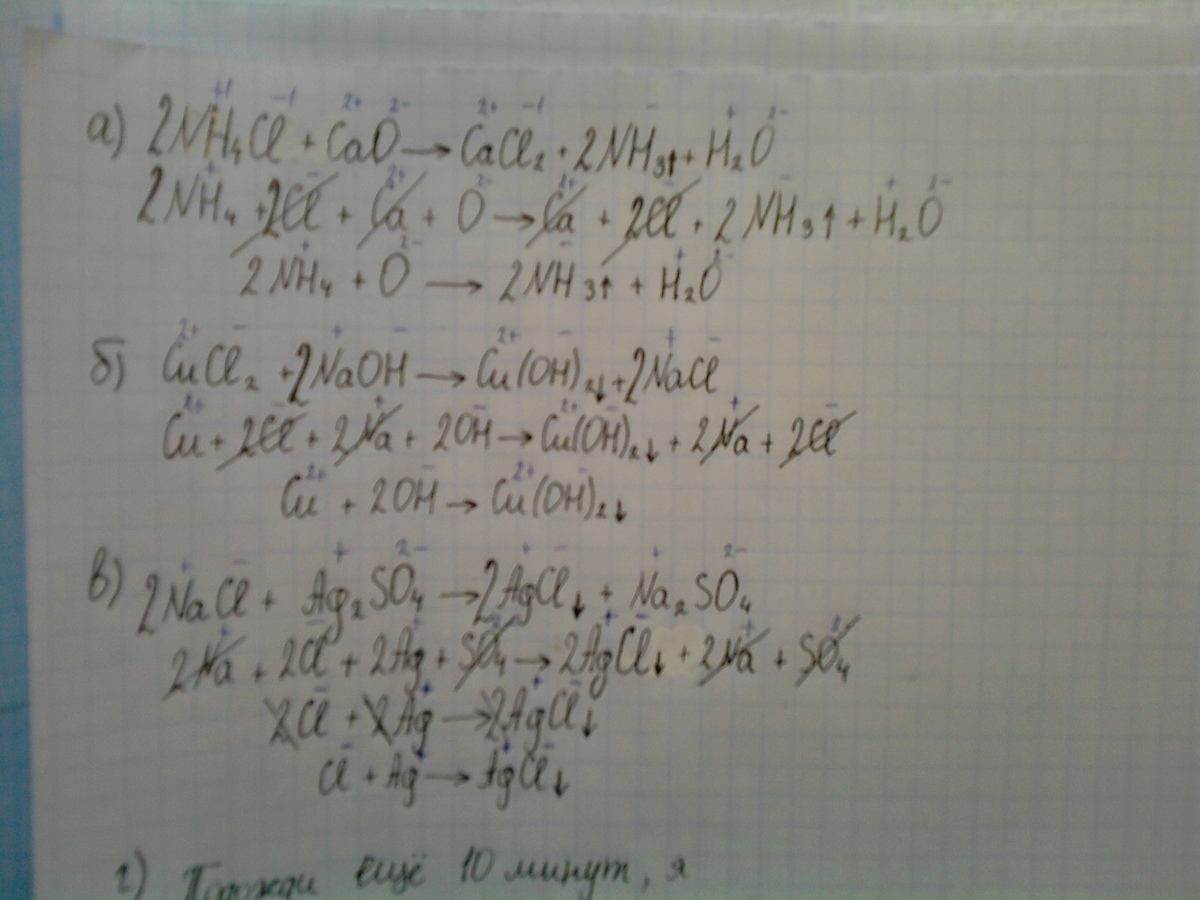 а) 2NH₄⁺¹Cl⁻¹ + Ca²⁺O²⁻ → Ca²⁺Cl₂⁻¹ + 2NH₃⁻↑ + H₂⁺O²⁻
2NH₄⁺ + 2Cl⁻ + Ca²⁺ + O²⁻ → Ca²⁺ + 2Cl + 2NH₃⁻↑ + H₂⁺O²⁻
2NH₄⁺ + O²⁻ → 2NH₃⁻↑ + H₂⁺O²⁻
б) Cu²⁺Cl₂⁻ + 2Na⁺OH⁻ → Cu²⁺(OH)₂⁻↓ + 2Na⁺Cl⁻
Cu²⁺ + 2Cl⁻ + 2Na⁺ + 2OH⁻ → Cu²⁺(OH)₂⁻↓ + 2Na⁺ + 2Cl⁻
Cu²⁺ + 2OH⁻ → Cu²⁺(OH)₂⁻↓
в) 2Na⁺Cl⁻ + Ag₂⁺SO₄²⁻ → 2Ag⁺Cl⁻↓ + Na₂⁺SO₄²⁻
2Na⁺ + 2Cl⁻ + 2Ag⁺ + SO₄²⁻ → 2Ag⁺Cl⁻↓ + 2Na⁺ + SO₄²⁻
2Cl⁻ + 2Ag⁺ → 2Ag⁺Cl⁻↓
Cl⁻ + Ag⁺ → Ag⁺Cl⁻↓
г) Подожди ещё 10 минут, я